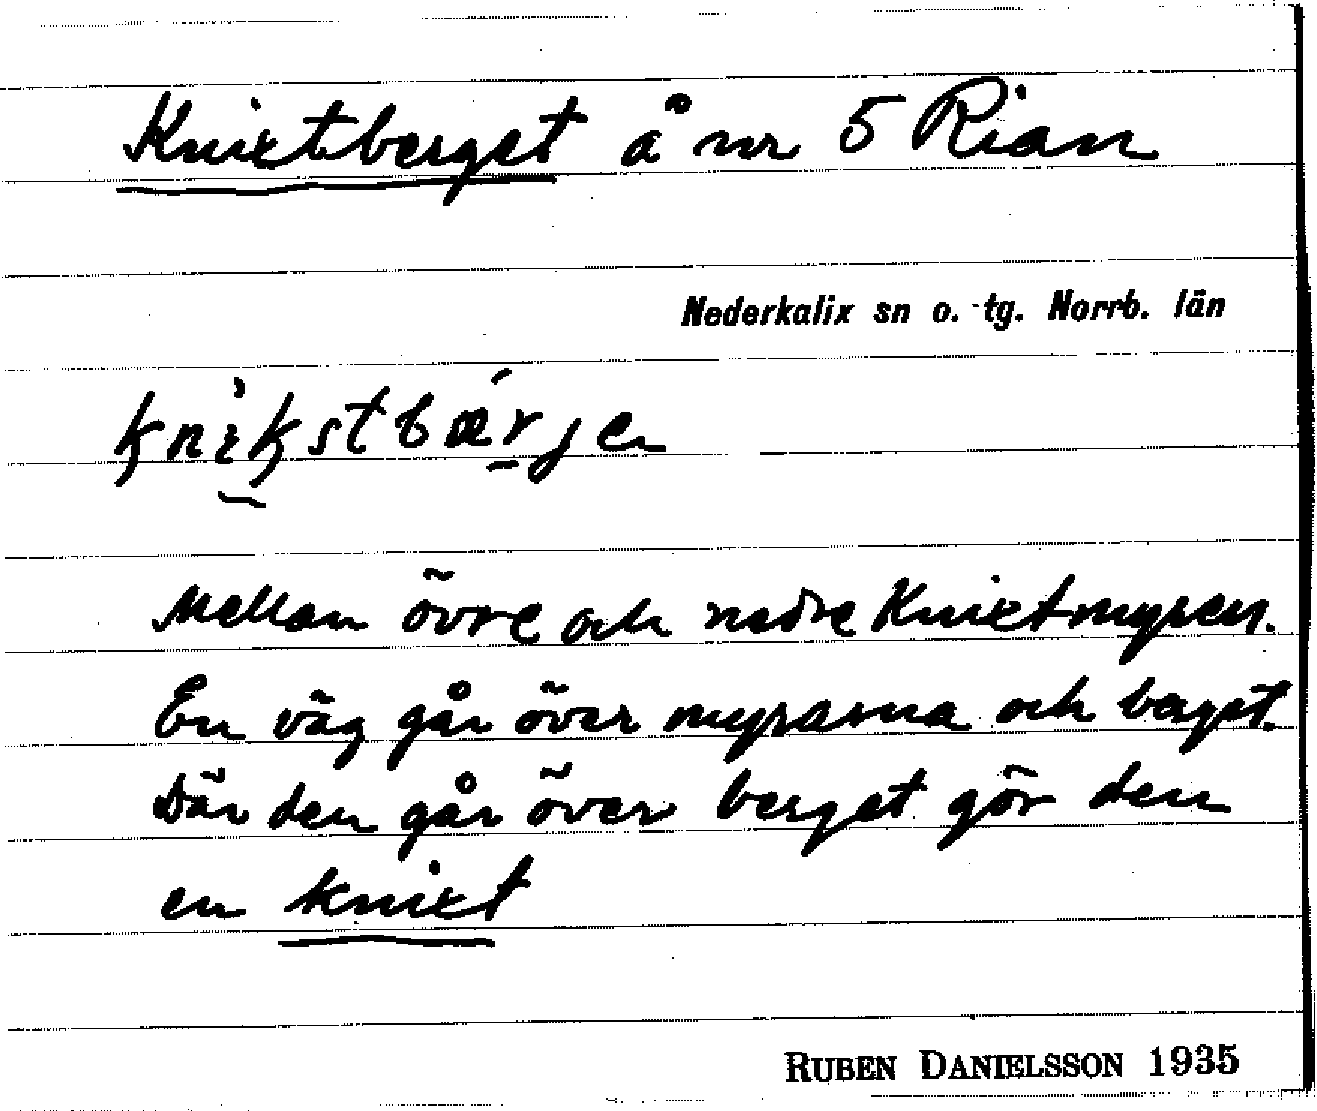 Knixtberget å nr 5 Rian
Nederkalix sn o. tg. Norrb. län
knikstbærjen
Mellan övre och nedre Knixtmyren.
En väg går över myrarna och berget.
Där den går över berget gör den
en knixt
RUBEN DANIELSSON 1935